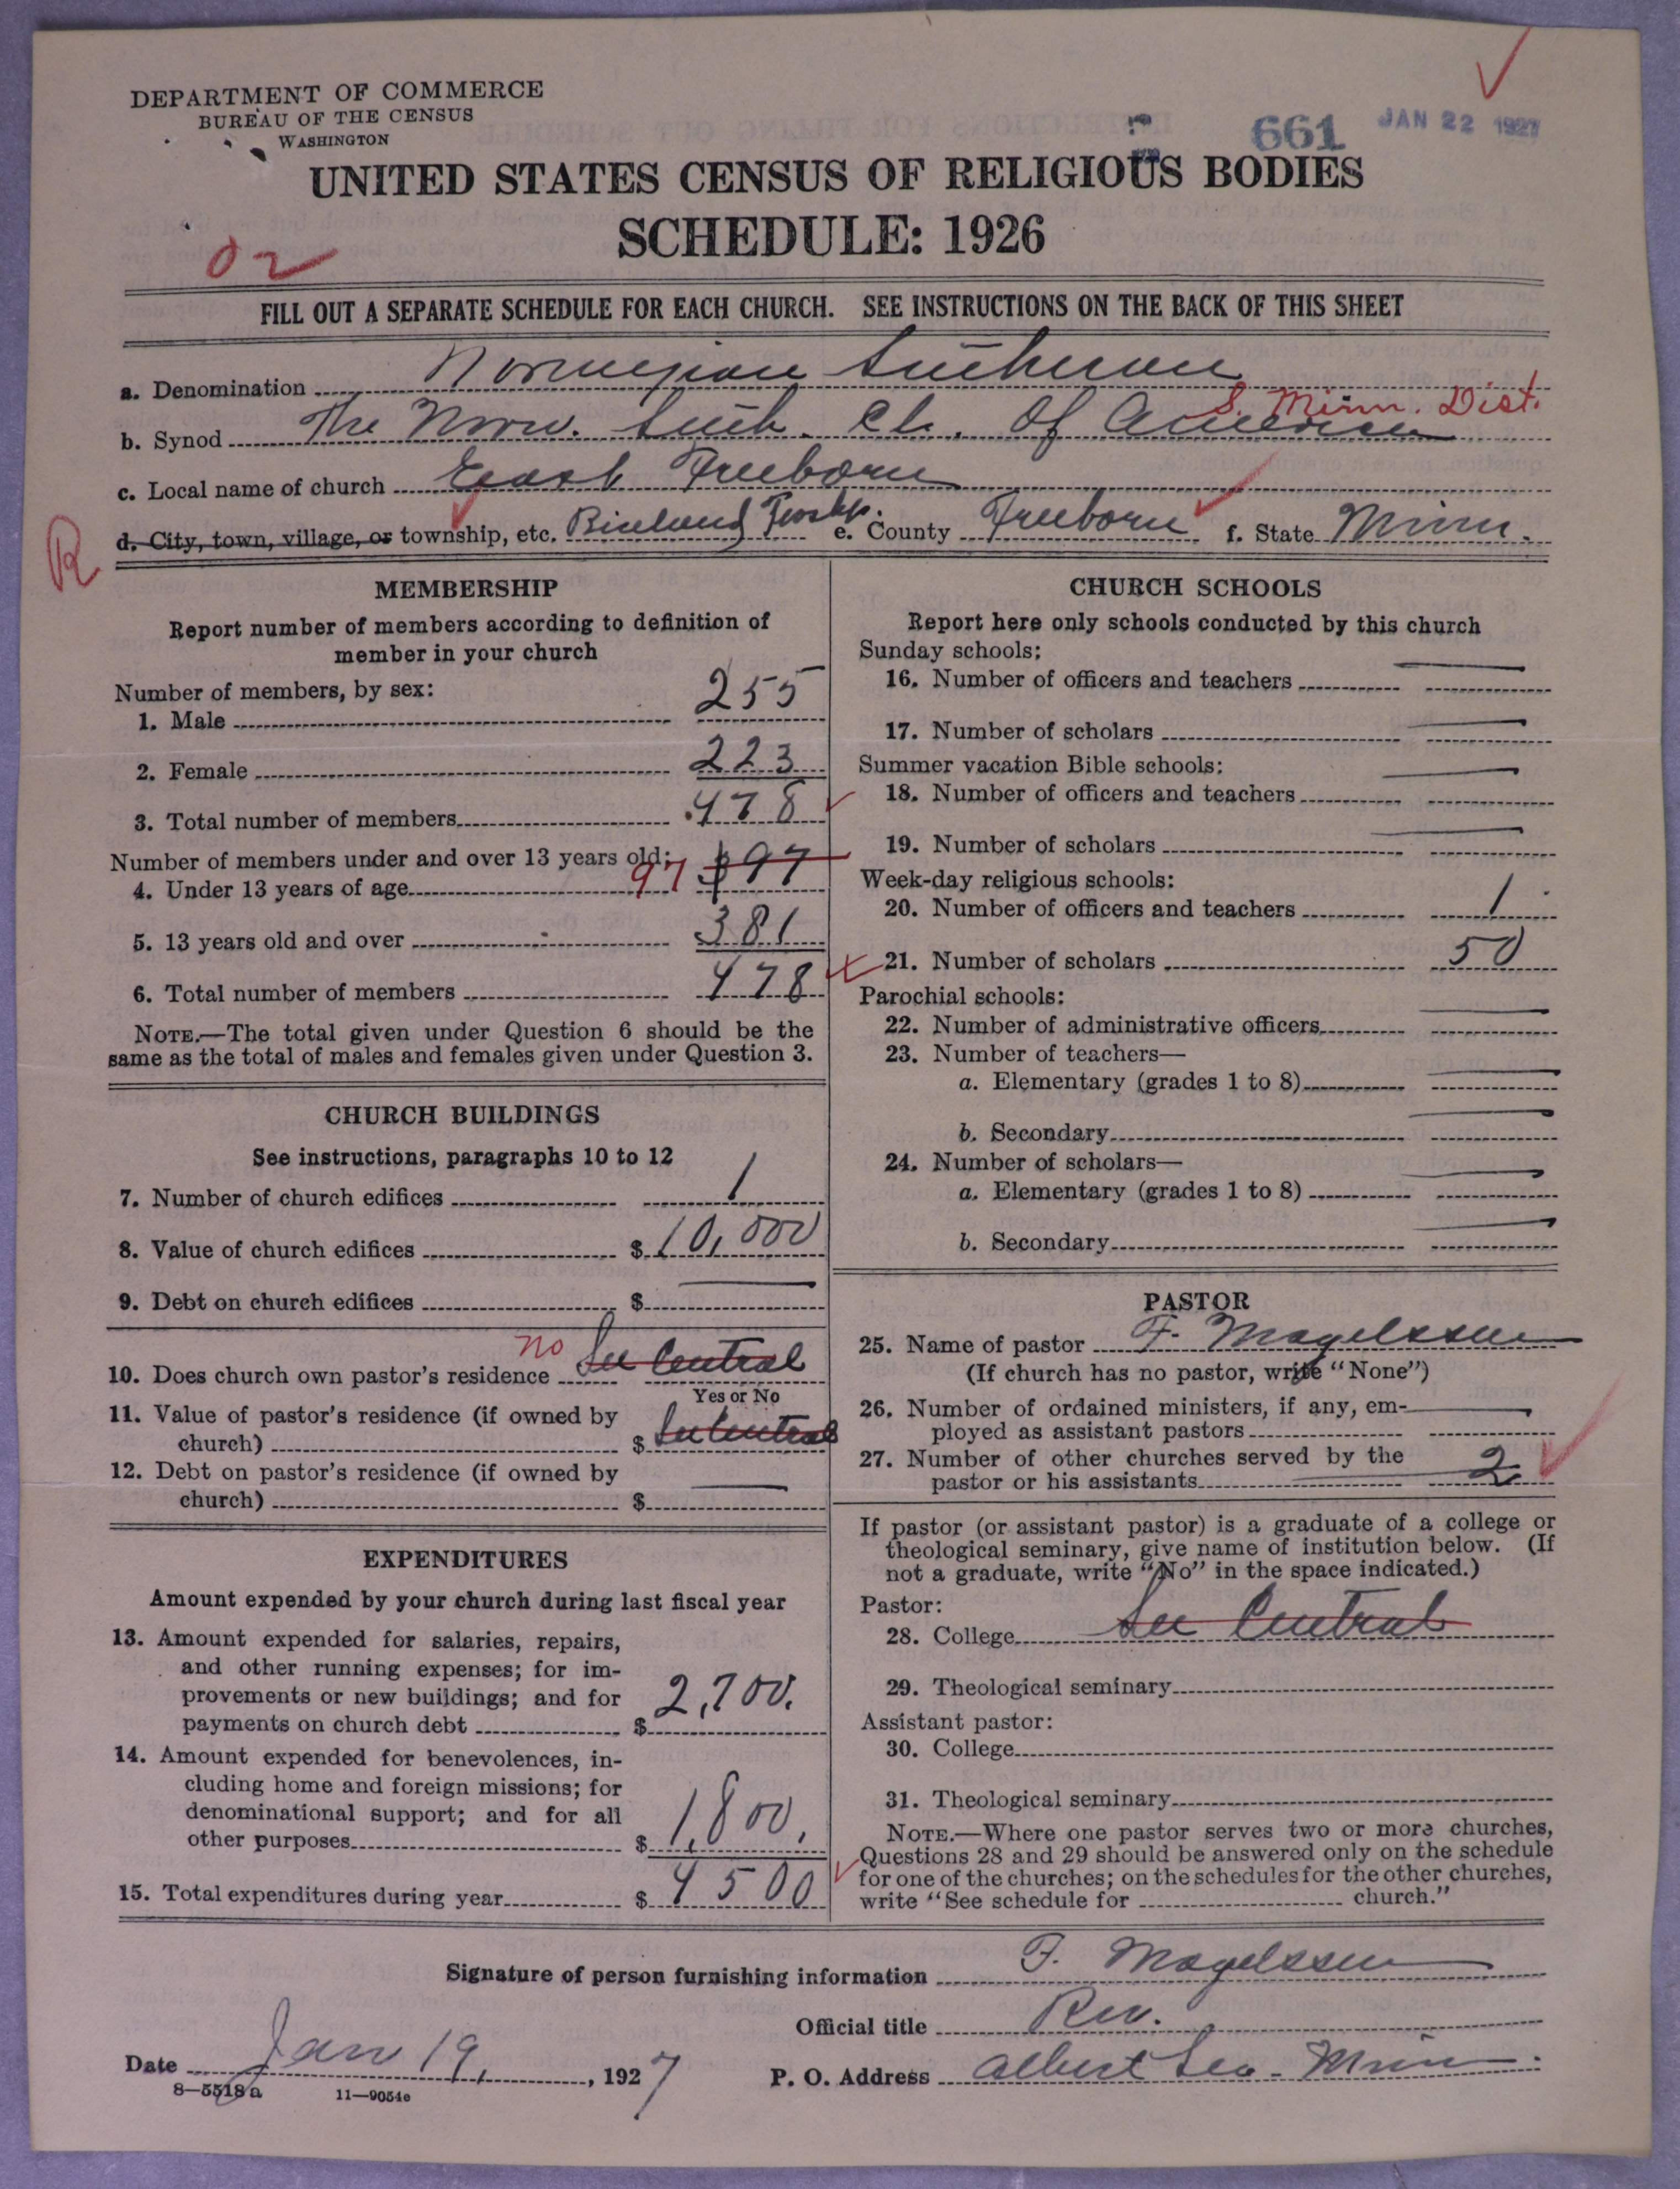 DEPARTMENT OF COMMERCE
BUREAU OF THE CENSUS
WASHINGTON
661 JAN 22 1927
UNITED STATES CENSUS OF RELIGIOUS BODIES
SCHEDULE: 1926
02
FILL OUT A SEPARATE SCHEDULE FOR EACH CHURCH. SEE INSTRUCTIONS ON THE BACK OF THIS SHEET
a. Denomination Norwegian Lutheran
S. Minn. Dist.
b. Synod The Norw. Luth. Ch. of America
c. Local name of church East Freeborn
R
d. City, town, village, or township, etc. e. County Freeborn f. State Minn.
MEMBERSHIP
Report number of members according to definition of
member in your church
Number of members, by sex:
1. Male 255
2. Female 223
3. Total number of members 478
Number of members under and over 13 years old:
4. Under 13 years of age 97 97
5. 13 years old and over 381
6. Total number of members 478
NOTE.—The total given under Question 6 should be the
same as the total of males and females given under Question 3.
CHURCH BUILDINGS
See instructions, paragraphs 10 to 12
7. Number of church edifices 1
8. Value of church edifices $ 10,000
9. Debt on church edifices $ —
10. Does church own pastor's residence no See Central
Yes or No
11. Value of pastor's residence (if owned by
church) $ See Central
12. Debt on pastor's residence (if owned by
church) $ —
EXPENDITURES
Amount expended by your church during last fiscal year
13. Amount expended for salaries, repairs,
and other running expenses; for im-
provements or new buildings; and for
payments on church debt $ 2,700.
14. Amount expended for benevolences, in-
cluding home and foreign missions; for
denominational support; and for all
other purposes $ 1,800.
15. Total expenditures during year $ 4500
CHURCH SCHOOLS
Report here only schools conducted by this church
Sunday schools:
16. Number of officers and teachers —
17. Number of scholars —
Summer vacation Bible schools:
18. Number of officers and teachers —
19. Number of scholars —
Week-day religious schools:
20. Number of officers and teachers 1
21. Number of scholars 50
Parochial schools:
22. Number of administrative officers —
23. Number of teachers—
a. Elementary (grades 1 to 8) —
b. Secondary —
24. Number of scholars—
a. Elementary (grades 1 to 8) —
b. Secondary —
PASTOR
25. Name of pastor F. Magelssen
(If church has no pastor, write "None")
26. Number of ordained ministers, if any, em-
ployed as assistant pastors —
27. Number of other churches served by the
pastor or his assistants 2
If pastor (or assistant pastor) is a graduate of a college or
theological seminary, give name of institution below. (If
not a graduate, write "No" in the space indicated.)
Pastor:
28. College See Central
29. Theological seminary
Assistant pastor:
30. College
31. Theological seminary
NOTE.—Where one pastor serves two or more churches,
Questions 28 and 29 should be answered only on the schedule
for one of the churches; on the schedules for the other churches,
write "See schedule for church."
Signature of person furnishing information F. Magelssen
Official title Rev.
Date Jan 19, 1927 P. O. Address Albert Lea. Minn.
8—5518a 11—9054e